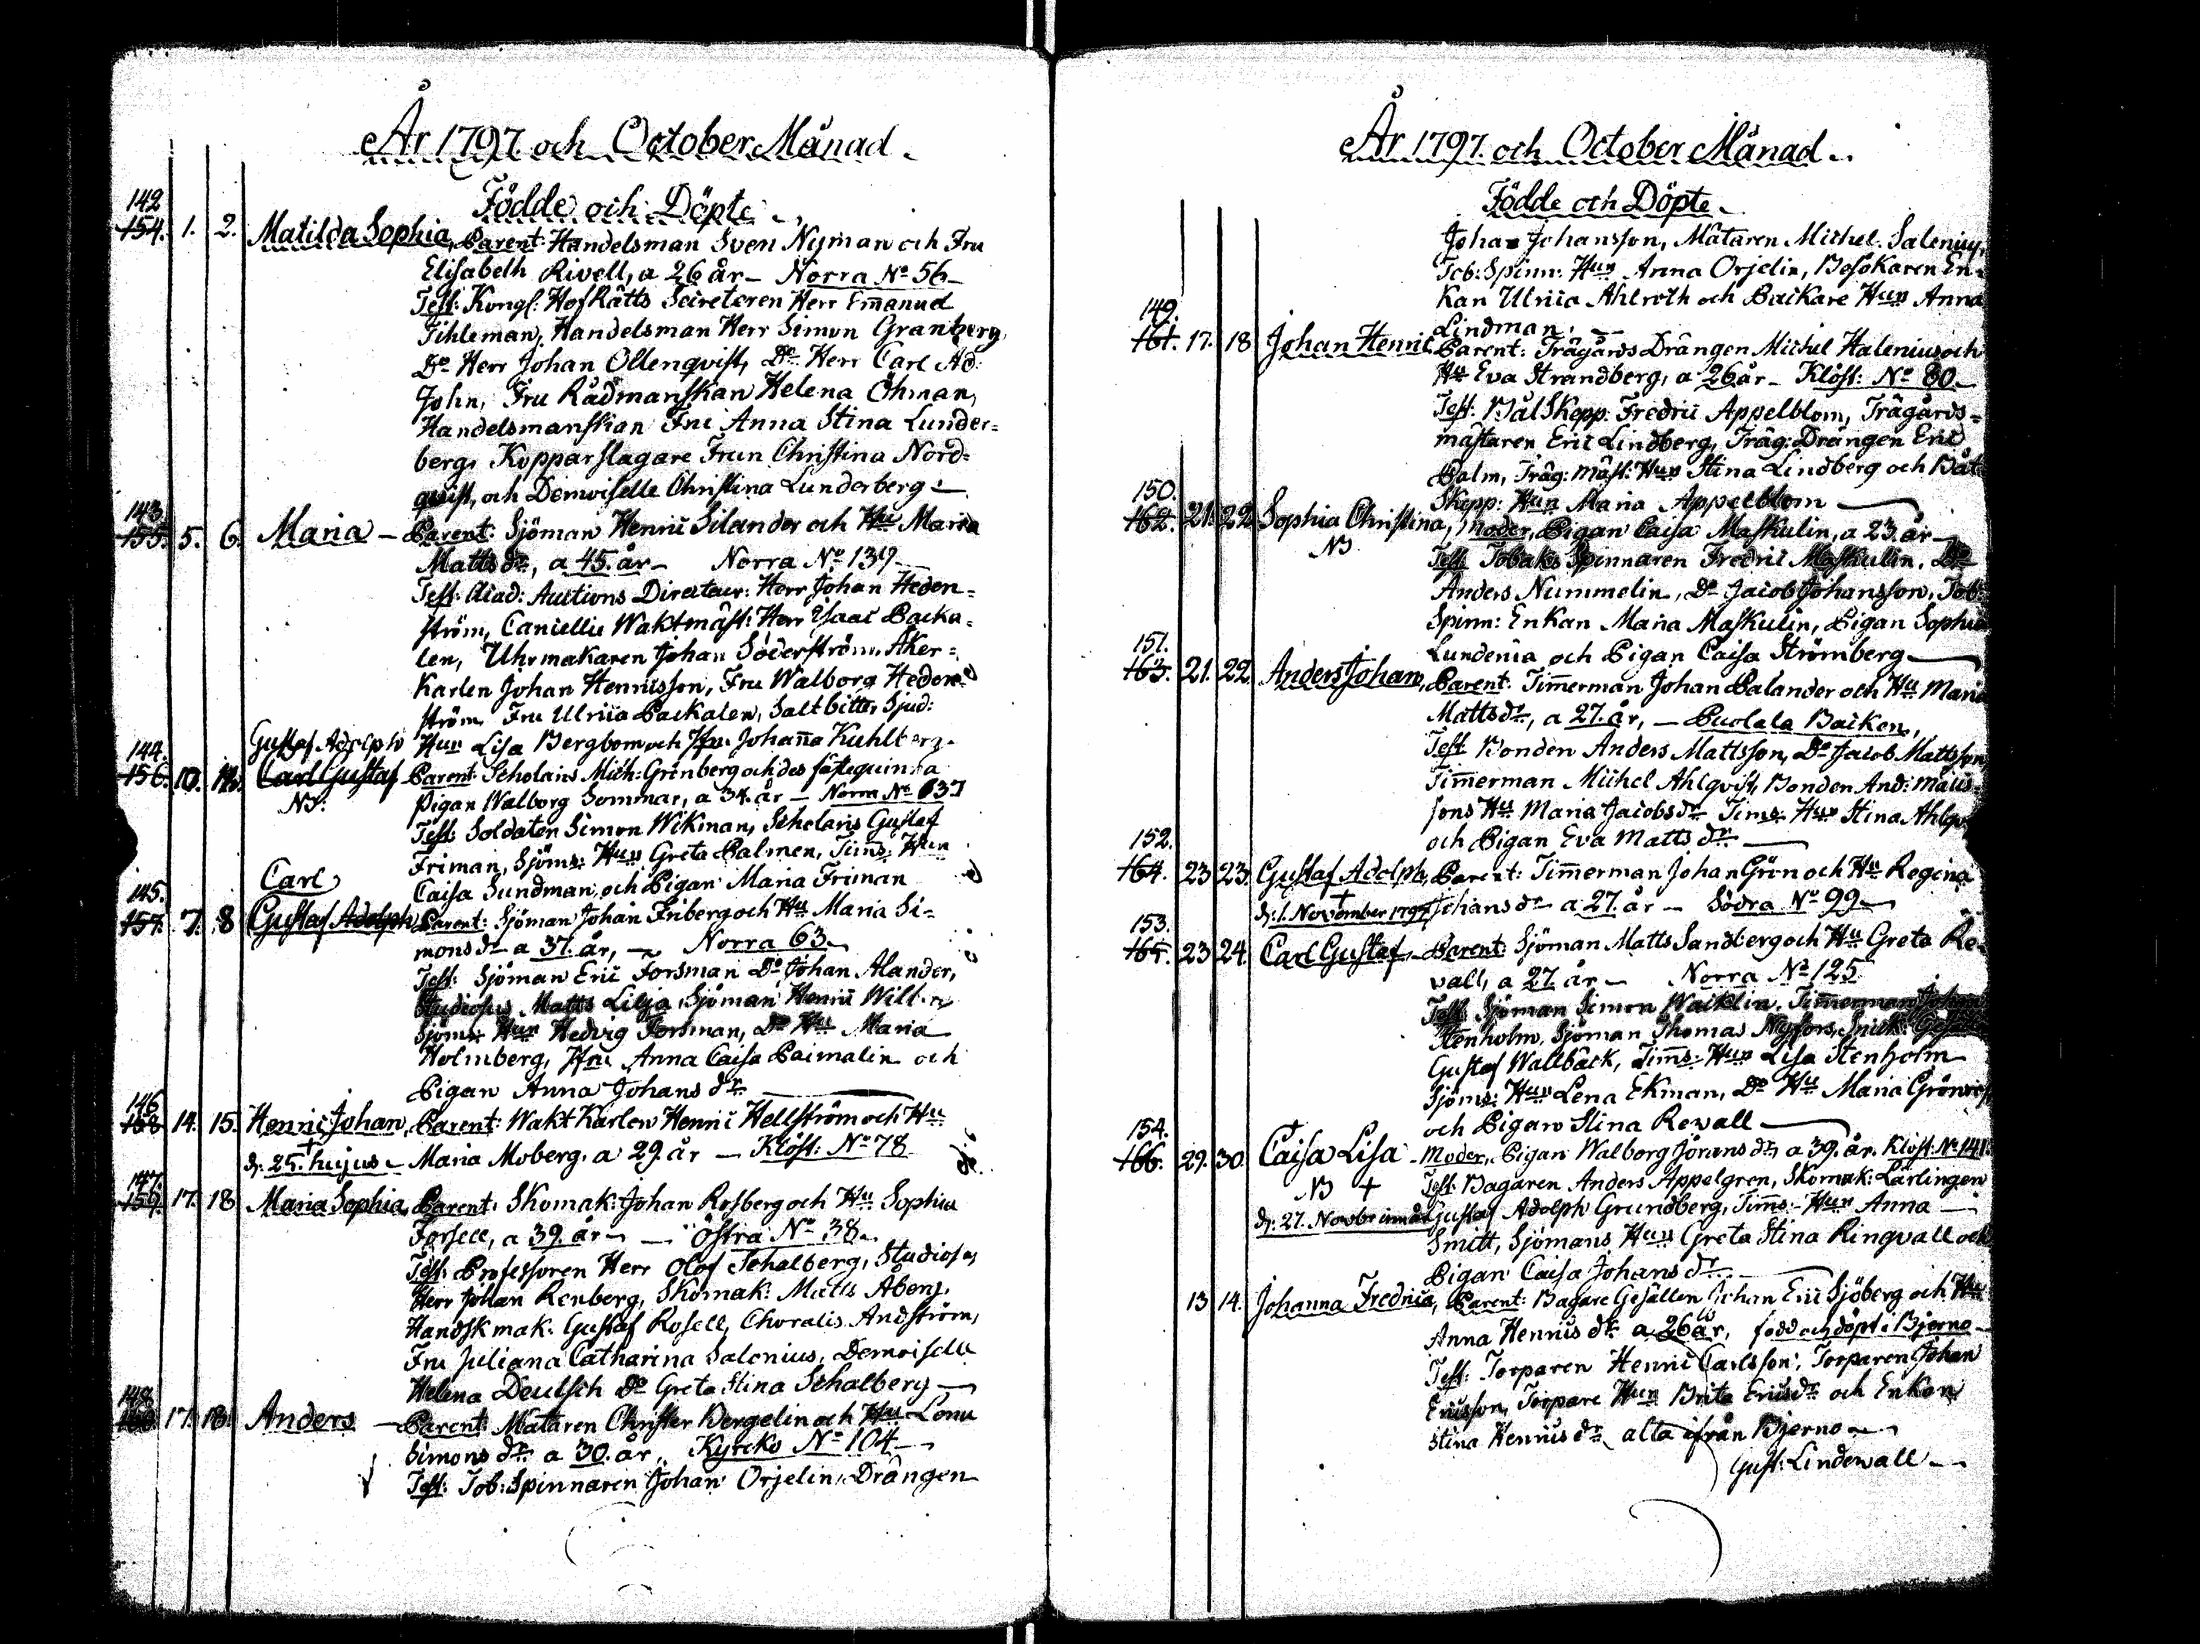 År 1797. och October Månad.
Födde och Döpte.
142
154. 1. 2. Matilda Sophia, Parent: Handelsman Sven Nyman och Fru
Elisabeth Rivell, a 26 år – Norra No 56 –
Test: Kongl: HofRätts Secreteren Herr Emanuel
Tihleman, Handelsman Herr Simon Grantberg,
Do Herr Johan Ollenqvist, Do Herr Carl Ad:
John, Fru Rådmanskan Helena Öhman,
Handelsmanskan Fru Anna Stina Lunder=
berg, Kopparslagare Frun Christina Nord=
qvist, och Demoiselle Christina Lunderberg –
143.
155. 5. 6. Maria – Parent: Sjöman Henric Silander och Hu Maria
Matts dr, a 45. år – Norra No 139
Test: Acad: Auctions Directeur: Herr Johan Heden=
ström, Cancellie Waktmäst: Herr Isaac Packa=
len, Uhrmakaren Johan Söderström, Åker=
Karlen Johan Henricsson, Fru Walborg Heden=
ström, Fru Ulrica Packalen, Saltbitter Sjud:
Hun Lisa Bergbom och Jfru Johanna Kuhlberg.
Gustaf Adolph
144.
156. 10. Carl Gustaf Parent: Scholaris Mich: Grönberg och des fästequinna
NB: Pigan Walborg Sommar, a 34. år – Norra No 637
Test: Soldaten Simon Wikman, Scholaris Gustaf
Friman, Sjöms: Hun Greta Palmen, Tims: Hun
Caisa Sundman och Pigan Maria Friman
Carl
145.
157. 7. 8 Gustaf Adolph Parent: Sjöman Johan Friberg och Hu Maria Si=
mons dr a 37. år, – Norra 63.
Test: Sjöman Eric Forsman Do Johan Alander,
Studiosus Matts Lilja, Sjöman Henric
Sjöms: Hun Hedvig Forsman, Do Hu Maria
Holmberg, Jfru Anna Caisa Paimalin och
Pigan Anna Johans dr.
146
158 14. 15. Henric Johan, Parent: Wakt Karlen Henric Hellström och Hu
d. 25. hujus – Maria Moberg, a 29. år – Klöst: No 78
147.
159. 17. 18 Maria Sophia, Parent: Skomak: Johan Rosberg och Hu Sophia
Forsell, a 39. år – Östra No 38.
Test: Professoren Herr Olof Schalberg, Studiosus
Herr Johan Renberg, Skomak: Matts Åberg,
Handskmak: Gustaf Rosell, Choralis Andström,
Fru Juliana Catharina Salonius, Demoiselle
Helena Deutsch Do Greta Stina Schalberg –
148
160 17. 18. Anders – Parent: Mätaren Christer Bergelin och Hu Lona
Simons dr a 30. år, Kyrcko No 104 –
Test: Tob: Spinnaren Johan Orjelin, Drängen
År 1797. och October Månad.
Födde och Döpte.
Johan Johansson, Mätaren Michel Salenius,
Tob: Spinn: Hun Anna Orjelin, Besökaren En=
kan Ulrica Ahlroth och Backare Hun Anna
Lindman.
149.
161. 17. 18 Johan Henric Parent: Trägårds Drängen Michel Halenius och
Hu Eva Strandberg, a 26 år – Klöst: No 80 –
Test: Båt Skepp. Fredric Appelblom, Trägårds=
mästaren Eric Lindberg, Träg: Drängen Eric
Palm, Träg: Mäst: Hun Stina Lindberg och Båt
Skepp: Hun Maria Appelblom –
150.
162. 21. 22. Sophia Christina, Moder, Pigan Caisa Maskulin, a 23. år –
NB. Test: Tobaks Spinnaren Fredric Maskulin, Do
Anders Nummelin, Do Jacob Johansson, Tob:
Spinn: Enkan Maria Maskulin, Pigan Sophia
Lundenia och Pigan Caisa Strömberg –
151.
163. 21. 22. Anders Johan, Parent: Timmerman Johan Palander och Hu Maria
Matts dr, a 27. år, – Puolala Backen,
Test: Bonden Anders Mattsson, Do Jacob Mattsson
Timmerman Michel Ahlqvist, Bonden And: Matts=
sons Hu Maria Jacobs dr Tims: Hun Stina Ahlqv
och Pigan Eva Matts dr –
152.
164. 23 23. Gustaf Adolph, Parent: Timmerman Johan Grön och Hu Regina
d. 1. November 1797 Johans dr a 27. år – Södra No 99 –
153.
165. 23 24. Carl Gustaf – Parent: Sjöman Matts Sandberg och Hu Greta Re=
vall, a 27 år – Norra No 125
Test: Sjöman Simon Wacklin, Timmerman Johan
Stenholm, Sjöman Thomas Nyfors, Smidts Gesäll
Gustaf Wallbäck, Tims: Hun Lisa Stenholm
Sjöms: Hun Lena Ekman, Do Hu Maria
och Pigan Stina Revall –
154.
166. 29. 30. Caisa Lisa – Moder, Pigan Walborg Jörans dr, a 39. år. Klöst: No 141.
NB + Test: Bagaren Anders Appelgren, Skomak: Lärlingen
d. 27. Novbr Gustaf Adolph Grundberg, Tims: Hun Anna –
Smitt, Sjömans Hun Greta Stina Ringvall och
Pigan Caisa Johans dr.
13 14. Johanna Fredrica, Parent: Bagare Gesällen Johan Eric Sjöberg och Hu
Anna Henrics dr a 26 år, född och döpt i Bjerno –
Test: Torparen Henric Carlsson, Torparen Johan
Ericsson, Torpare Hun Brita Erics dr och Enkan
Stina Henrics dr, alla ifrån Bjerno –
Gust: Lindewall –